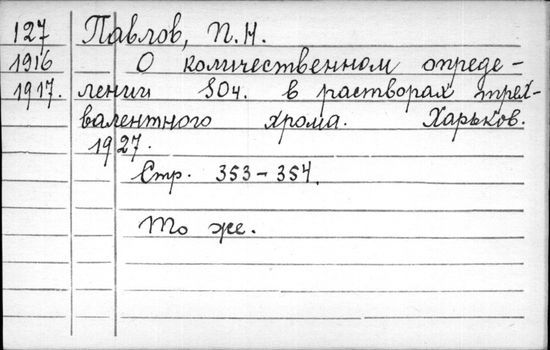 127 Павлов, П.Н.
1916 О количественном опреде-
1917. лении SO4. в растворах трех-
валентного хрома. Харьков.
1927.
Стр. 353-354.
То же.